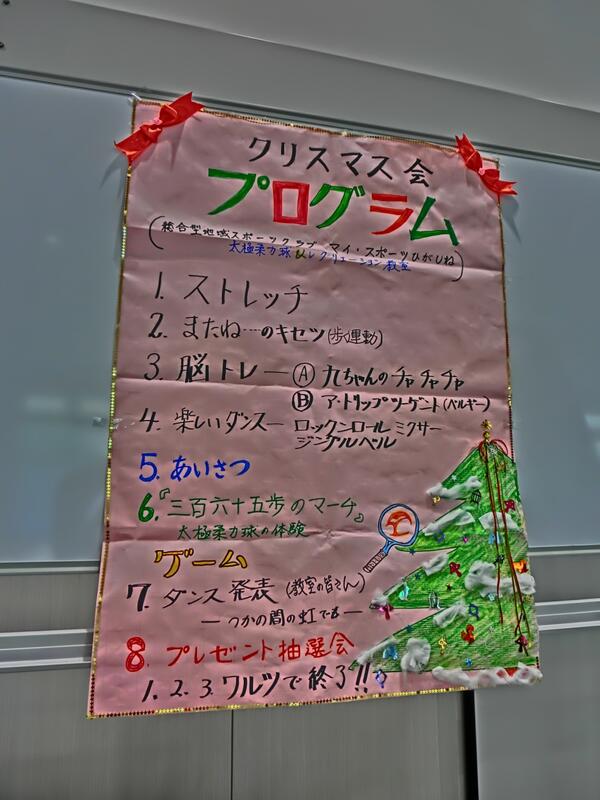 クリスマス会
プログラム
(総合型地域スポーツクラブ マイ・スポーツひがしね
太極柔力球&レクリエーション教室)
1. ストレッチ
2. またね…のキセツ(歩く運動)
3. 脳トレ — Ⓐ 九ちゃんのチャチャチャ
Ⓑ ア・トリップツーゲント(ベルギー)
4. 楽しいダンス— ロックンロールミクサー
ジングルベル
5. あいさつ
6.『三百六十五歩のマーチ』
太極柔力球の体験
ゲーム
7. ダンス発表(教室の皆さん)
—つかの間の虹でも—
8. プレゼント抽選会
1. 2. 3. ワルツで終了!!